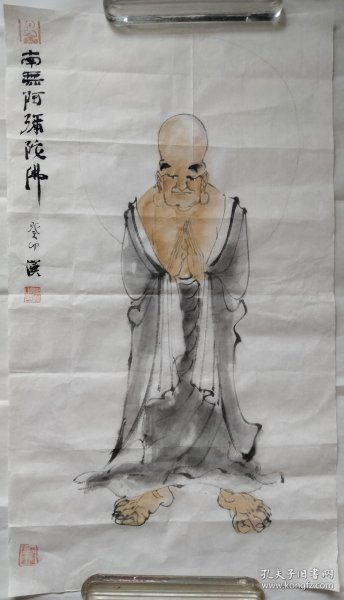 南無阿彌陀佛
癸卯
孔夫子旧书网
www.kongfz.com